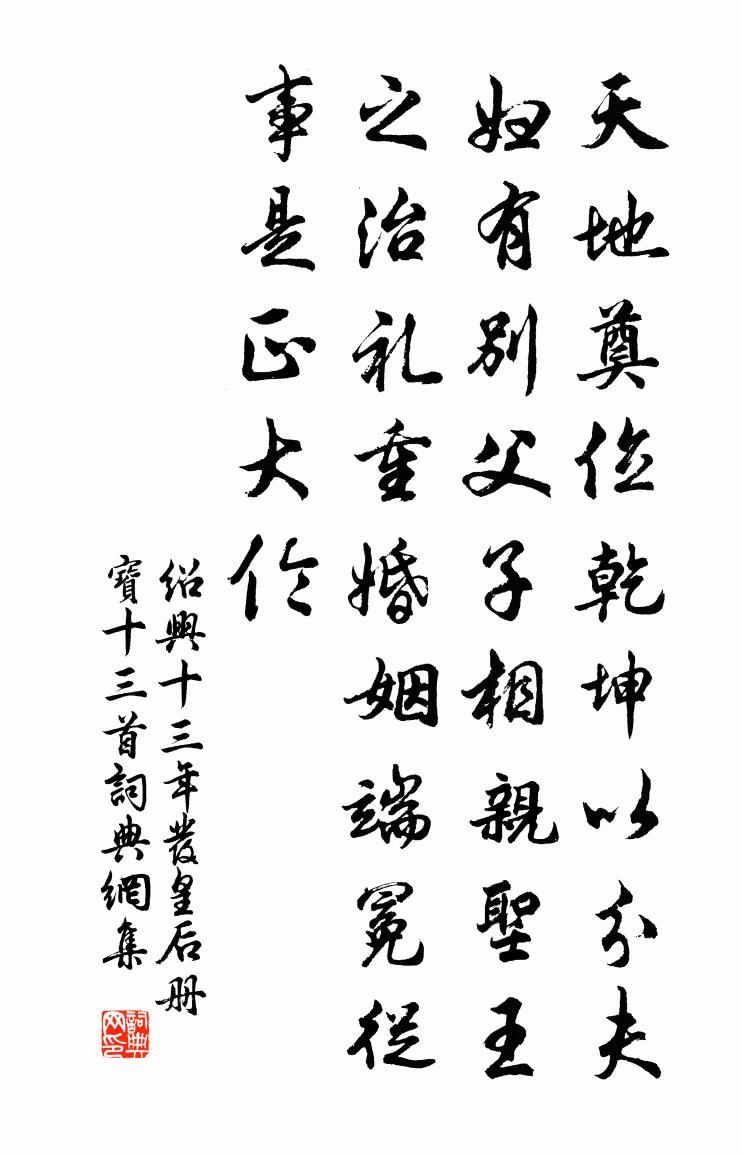 天地奠位乾坤以分夫
妇有别父子相親聖王
之治礼重婚姻端冕從
事是正大伦
绍興十三年發皇后册
寳十三首詞典網集
詞典网印